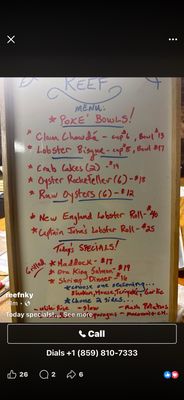 KEEF
MENU:
* POKE' BOWLS!
* Clam Chowda - cup $6, Bowl $13
* Lobster Bisque - cup $8, Bowl $17
* Crab Cakes (2) - $19
* Oyster Rockefeller (6) - $18
* Raw Oysters (6) - $12
* New England Lobster Roll - $40
* Captain Jorn's Lobster Roll - $25
Today's SPECIALS!
Grilled
* Haddock - $17
* Ora King Salmon - $19
* Shrimp Dinner - $16
* choose one seasoning...
* Choose 2 sides...
- Slaw
- Asparagus
reefnky
Today specials!... See more
Call
Dials +1 (859) 810-7333
26
2
4